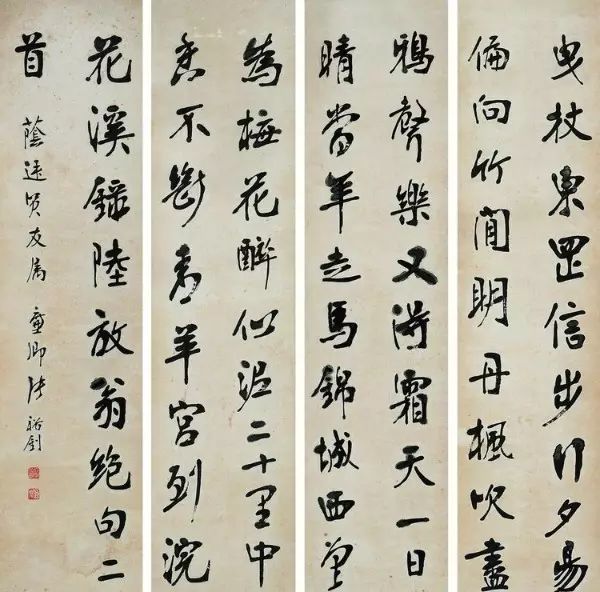 曳杖東岡信步行夕陽
偏向竹間明丹楓吹盡
鴉聲樂又得霜天一日
晴當年走馬錦城西曾
為梅花醉似泥二十里中
香不斷青羊宮到浣
花溪錄陸放翁絕句二
首
蔭遠賢友屬 廉卿張裕釗